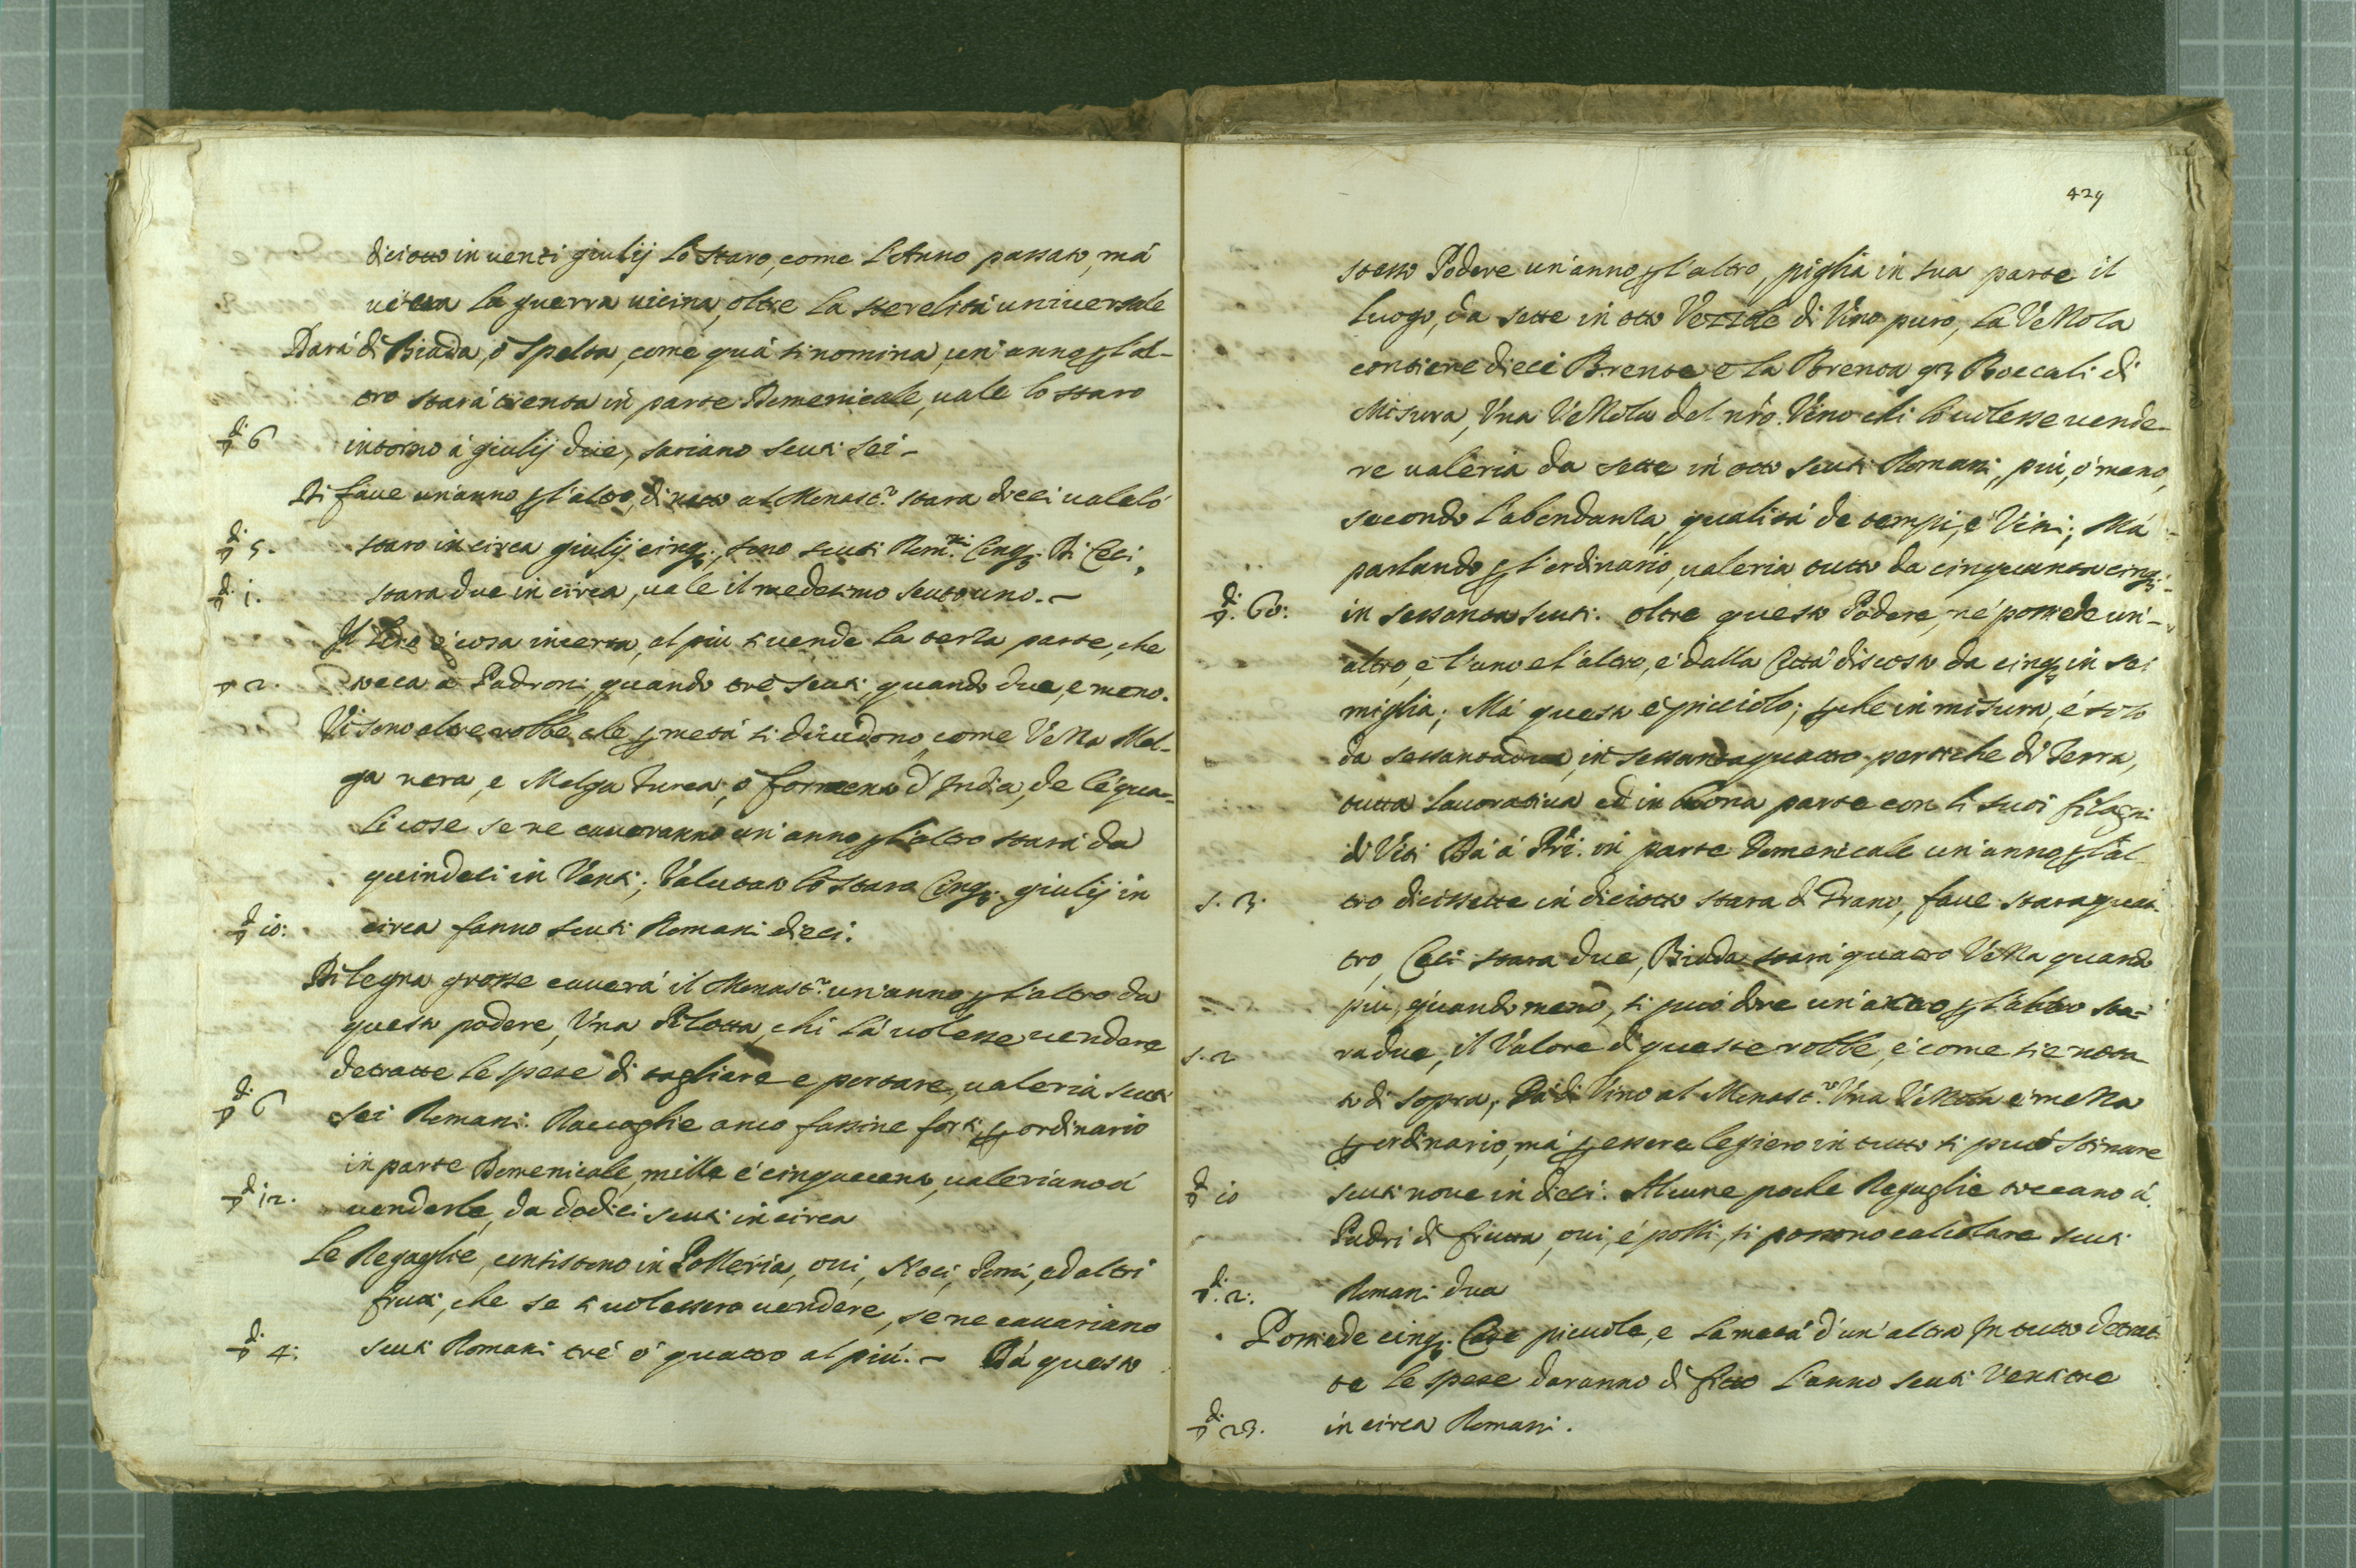 diciotto in uenti giulij lo staro, come l'Anno passato, mà
ui era la guerra uicina, oltre la sterelità uniuersale
Darà di Biada, ò Spelta, come quà si nomina, un'anno p l'al-
tro starà trenta in parte Domenicale, uale lo staro
6 intorno à giulij due, sariano scuti sei -
Di faue un'anno p l'altro, di netto al Monast.º stara dieci uale lò
5. staro in circa giulij cinq;, sono scuti Rom.ni Cinq; Di Ceci,
i. stara due in circa, uale il medesimo scuto uno. -
Il Lino è cosa incerta, al più si uende la terza parte, che
2. tocca à Padroni, quando trè scuti, quando due, e meno.
Vi sono altre robbe che p metà si diuidono, come Vezza Mel-
ga nera, e Melga turca, ò formento d'India, de le qua-
li cose se ne caueranno un'anno p l'altro starà da
quindeci in Venti; Valutato lo stara Cinq; giulij in
io: circa fanno scuti Romani dieci.
Di legna grosse cauerà il Monast.º un'anno p l'altro da
questo podere, Vna Pilotta, chi là uolesse uendere
detratte le spese di tagliare e portare, ualeria scuti
6 sei Romani. Raccoglie anco fassine forti p ordinario
in parte Domenicale, mille è cinquecento, ualeriano à
i2. venderle, da dodici scuti in circa
Le Regaglie, consistono in Polleria, oui, Noci, Pomi, ed altri
frutti, che se si uolessero uendere, se ne cauariano
4: scuti Romani trè ò quattro al più. - Dà questo
429
stesso Podere un'anno p l'altro, piglia in sua parte il
luogo, da sette in otto Vezzole di Vino puro, la Vezzola
contiene dieci Brente e la Brenta Boccali di
Misura, Vna Vezzola del nrõ. Vino chi lo uolesse uende-
re ualeria da sette in otto scuti Romani, più, ò meno,
secondo l'abondanza, qualità de tempi, e Vini; Mà
parlando p l'ordinario, ualeria tutto da cinquanta cinq;
60: in sessanta scuti. oltre questo Podere, nè possiede un'-
altro, e l'uno e l'altro, è dalla Città discosto da cinq; in sei
miglia; Mà questo è picciolo; p che in misura, è solo
da sessantadue, in sessantaquattro pertiche di Terra,
tutta lauoratiua ed in buona parte con li suoi filagni
di Viti Dà à Pri. in parte Domenicale un'anno p l'al-
s. 3. tro dicissette in diciotto stara di Grano, faue stara quat-
tro, Ceci stara due, Biada starà quatro Vezza quando
più, quando meno, si può dire un'anno p l'altro sta-
s. 2 ra due, il Valore di queste robbe, è come si è nota
to di sopra, Dà di Vino al Monast.º Vna Vezzola è mezza
p ordinario, mà p essere legiero in tutto si può stimare
io scuti noue in dieci. Alcune poche Regaglie toccano à
Padri di frutta, oui, è polli, si possono calcolare scuti
2: Romani due
Possiede cinq; Case picciole, e la metà d'un'altra In tutto detrat-
te le spese daranno di fitto l'anno scuti Ventitre
23. in circa Romani.